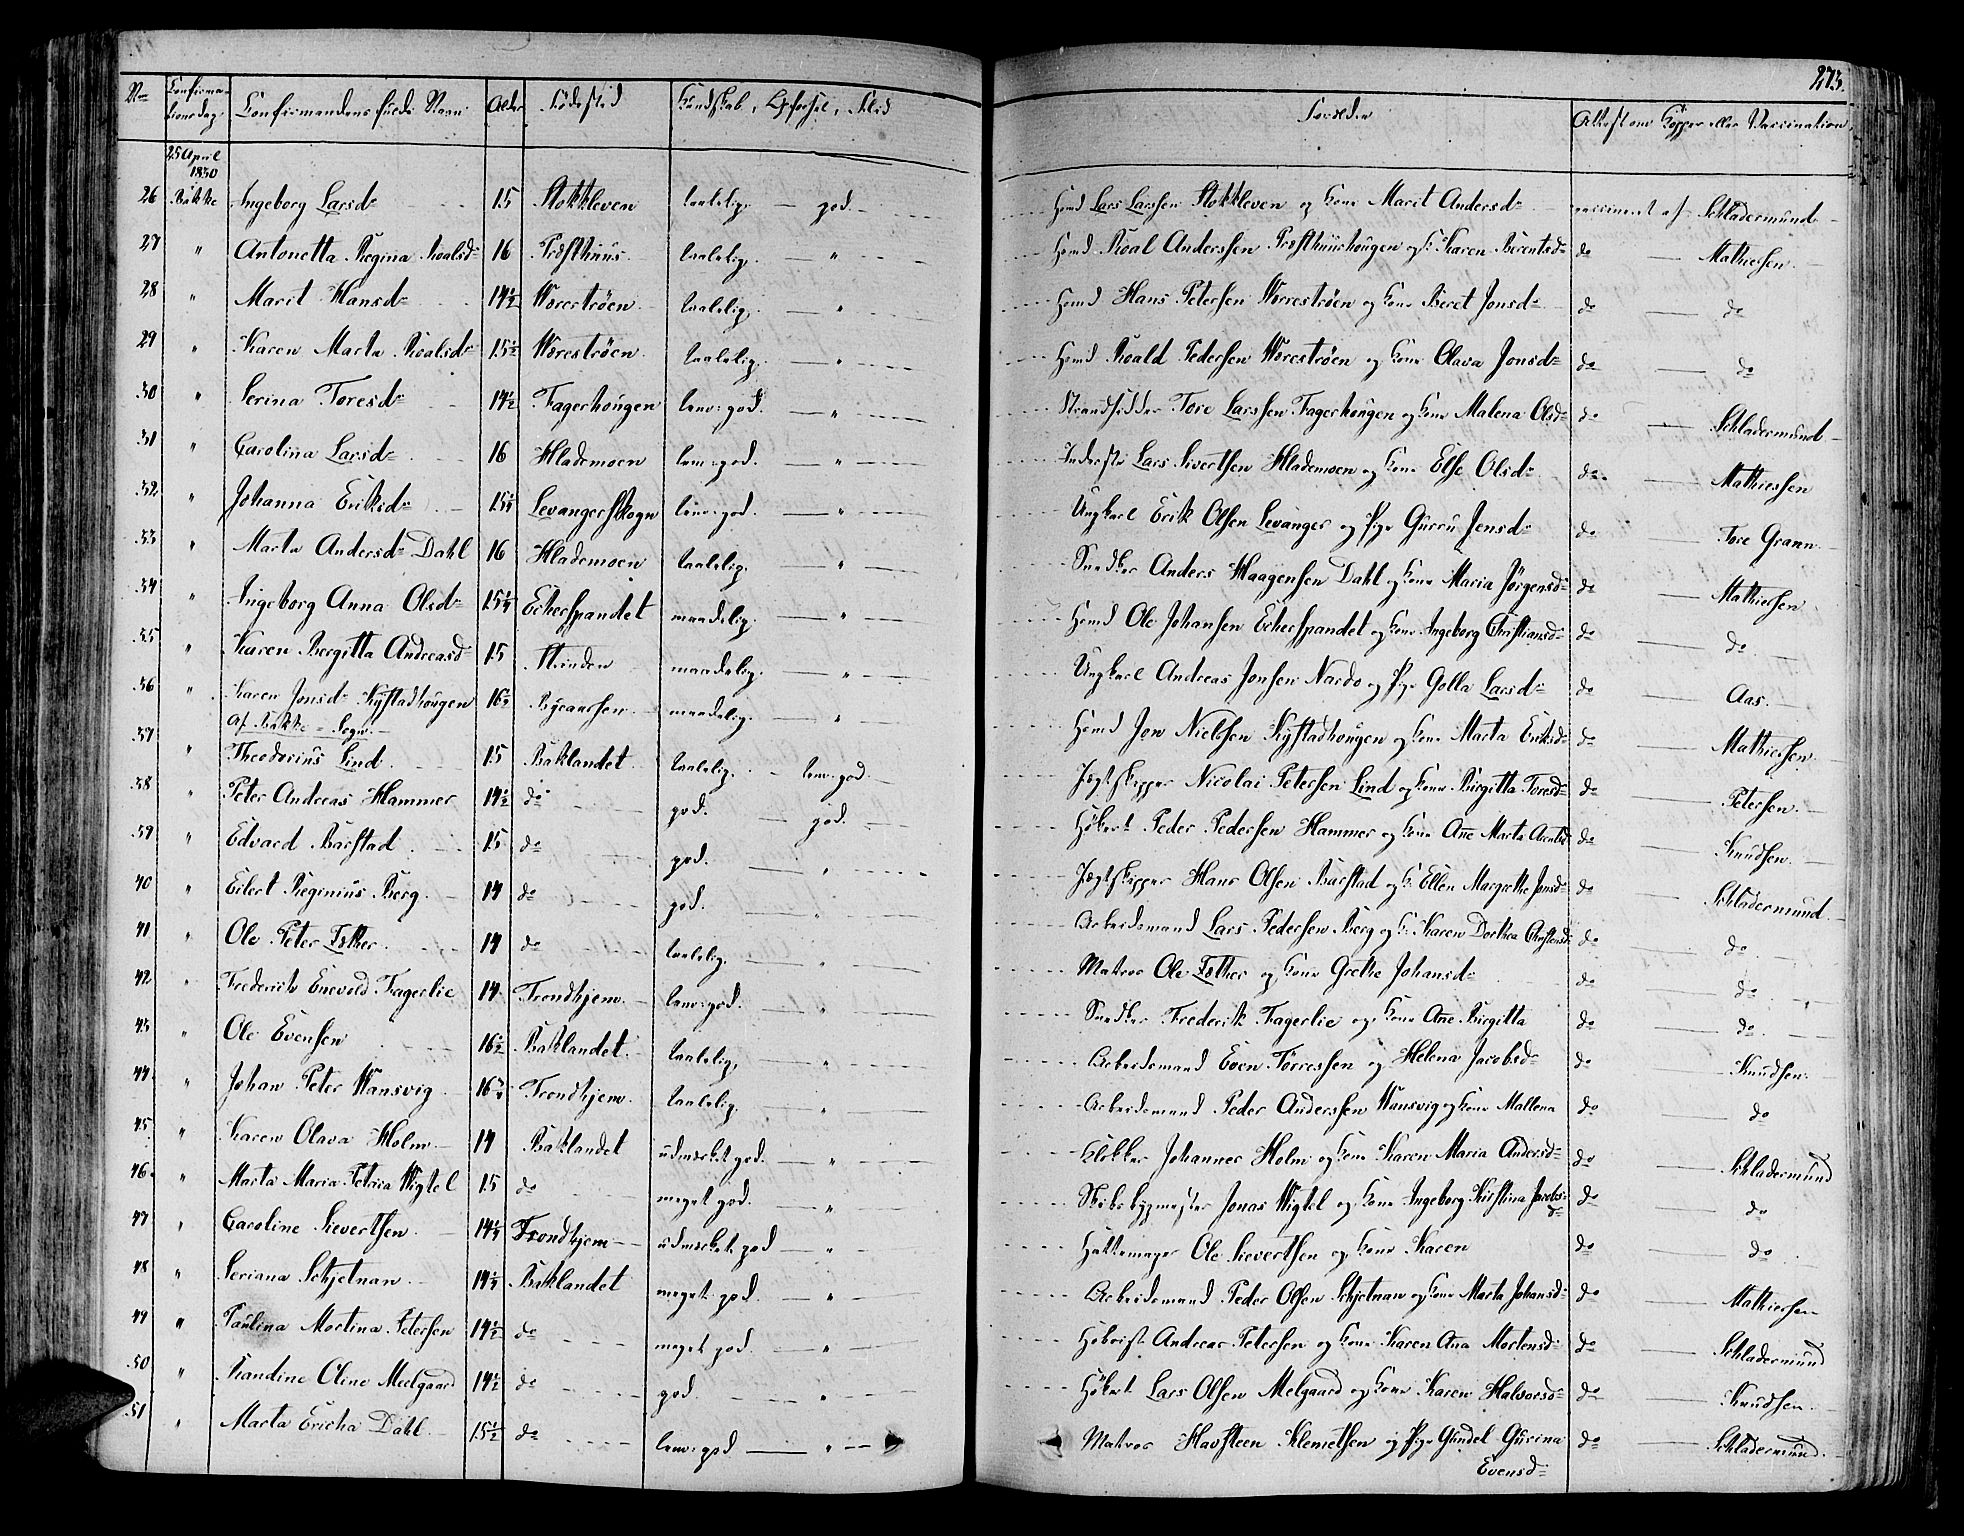 273.
No Confirmationsdag Confirmandens fulde Navn Alder Fødested Kundskab, Opførsel, Flid Forældre Attest om Kopper eller Vaccination
25 April 1830
26 Bakke Ingeborg Larsd= 15 Stokkleven taalelig. — god. Huusmd Lars Larssen Stokkleven og Kone Marit Andersd= vaccineret af Schladermund
27 " Antonetta Regina Roalsd= 16 Præsthuus taalelig. — " Huusmd Roal Anderssen Præsthuushougen og K. Karen Berentsd= do — Mathiesen.
28 " Marit Hansd= 14½ Worestrøen taalelig. — " Huusmd Hans Petersen Worrestrøen og Kone Beret Jonsd= do — do
29 " Karen Marta Roalsd= 15½ Worestrøen taalelig. — " Huusmd Roald Pedersen Worestrøen og Kone Olava Jonsd= do — do
30 " Serina Toresd= 14½ Fagerhougen temv: god. — " Strandsidder Tore Larssen Fagerhougen og Kone Malena Olsd= do — Schladermund
31 " Carolina Larsd= 16 Hlademoen tem: god. — " Inderste Lars Sivertsen Hlademoen og Kone Else Olsd= do. — Mathiessen
32 " Johanna Eriksd= 15¼ Levangerskogn temv: god. — " Ungkarl Erik Olsen Levanger og Pige Gurru Jensd= do — Tore Grann
33 " Marta Andersd= Dahl 16 Hlademoen taalelig. — " Snedker Anders Haagensen Dahl og Kone Maria Jörgensd= do — Mathiesen
34 " Ingeborg Anna Olsd= 15¼ Echerspandet maadelig. — " Huusmd Ole Johansen Echerspandet og Kone Ingeborg Christiansd= do — do
35 " Karen Bergitta Andreasd= 15 Strinden maadelig. — " Ungkarl Andreas Jonsen Nardo og Pige Golla Larsd= do — Aas.
36 " Karen Jonsd= Kystadhougen 16½ Byeaassen maadelig. — " Huusmd Jon Nielssen Kystadhougen og Kone Marta Eriksd= do — Mathiessen
Af Bakke = Sogn.
37 " Theodorius Lind 15 Baklandet taalelig. — temv: god. Jægtskipper Nicolai Petersen Lind og Kone Birgitta Toresd= do — Petersen.
38 " Peter Andreas Hammer 14½ do god. — god. Høkert Peder Pedersen Hammer og Kone Ane Marta Arentsd do — Knudsen.
39 " Edvard Barstad 15 do god. — " Jægtskipper Hans Olsen Barstad og K: Ellen Margrethe Jonsd= do — Schladermund
40 " Eilert Reginius Berg. 14 do god. — " Arbeidsmand Lars Pedersen Berg og K: Karen Dorthea Christensd= do — do
41 " Ole Peter Esther. 14 do taalelig. — " Matros Ole Esther og Kone Grethe Johansd= do — do
42 " Frederich Enevold Fagerlie 14 Trondhjem temv: god. — " Snedker Frederik Fagerlie og Kone Ane Birgitta do — do
43 " Ole Evensen 16½ Baklandet taalelig. — " Arbeidsmand Even Tørressen og Helena Jacobsd= do — Knudsen.
44 " Johan Peter Wansvig 16¾ Trondhjem. taalelig. — " Arbeidsmand Peder Anderssen Wansvig og Kone Mallena do — do
45 " Karen Olava Holm 14 Baklandet udmærket god. — " Klokker Johannes Holm og Kone Karen Maria Andersd= do — Schladermund
46 " Marta Maria Petrica Wigtel 15 do meget god. — " Skibsbygmester Jonas Wigtel og Kone Ingeborg Kirstina Jacobsd= do — do
47 " Caroline Sievertsen 14¼ Trondhjem udmærket god — " Hattemager Ole Sievertsen og Kone Karen do — do
48 " Seriana Schjetnan. 14¼ Baklandet meget god. — " Arbeidsmand Peder Olsen Schjetnan og Kone Marta Johansd= do — Mathiesen
49 " Paulina Mortina Petersen 14½ do meget god. — " Høkerist Andreas Petersen og Kone Karen Ana Mortensd= do — Schladermund
50 " Randine Oline Meelgaard 14½ do god. — " Høkert Lars Olsen Melgaard og Kone Karen Halvorsd= do — Knudsen.
51 " Marta Ericha Dahl. 15½ do temv: god — " Matros Havsteen Klemetsen og Pige Gundel Gurina Evensd= do — Schladermund.